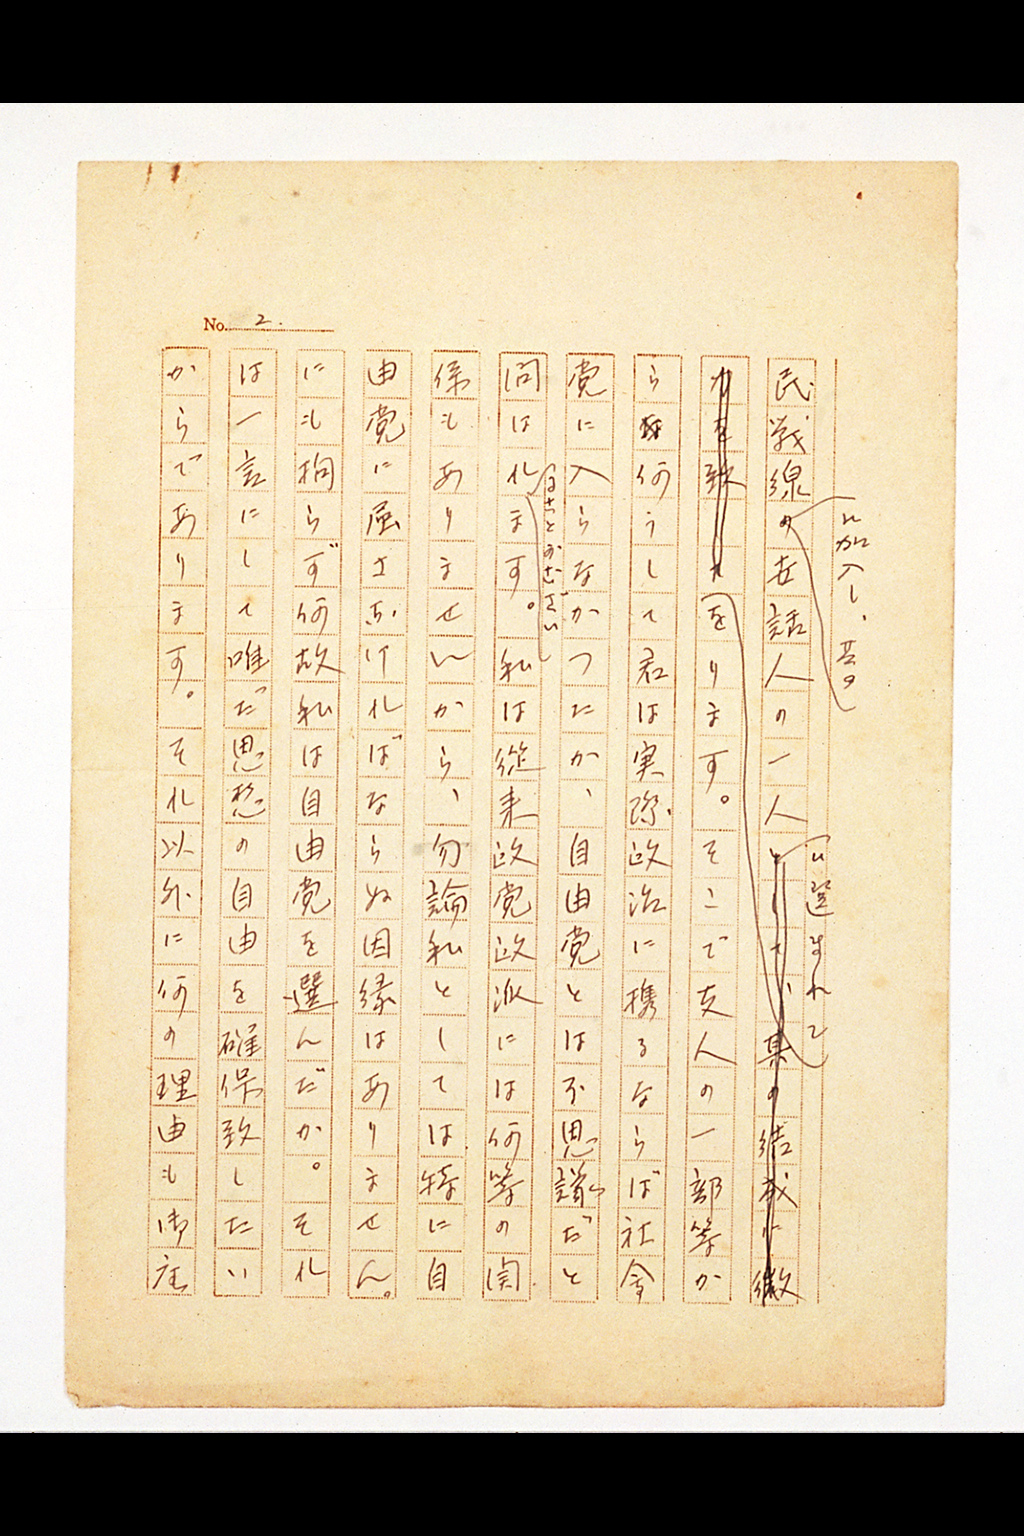 No. 2.
に加入し、其の
に選まれて
民戦線の世話人の一人として、其の結成に微
力を致してをります。そこで友人の一部等か
ら何うして君は実際政治に携るならば社会
党に入らなかつたか、自由党とは不思議だと
問はれます。私は従来政党政派には何等の関
係もありませんから、勿論私としては特に自
由党に屈さなければならぬ因縁はありません。
にも拘らず何故私は自由党を選んだか。それ
は一言にして唯だ思想の自由を確保致したい
からであります。それ以外に何の理由も御座